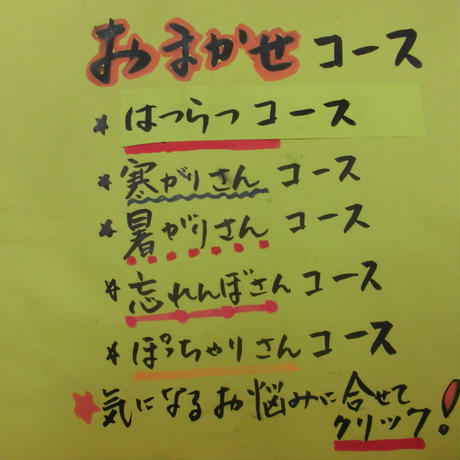 おまかせコース
* はつらつコース
* 寒がりさんコース
* 暑がりさんコース
* 忘れんぼさんコース
* ぽっちゃりさんコース
★気になるお悩みに合せて
クリック!